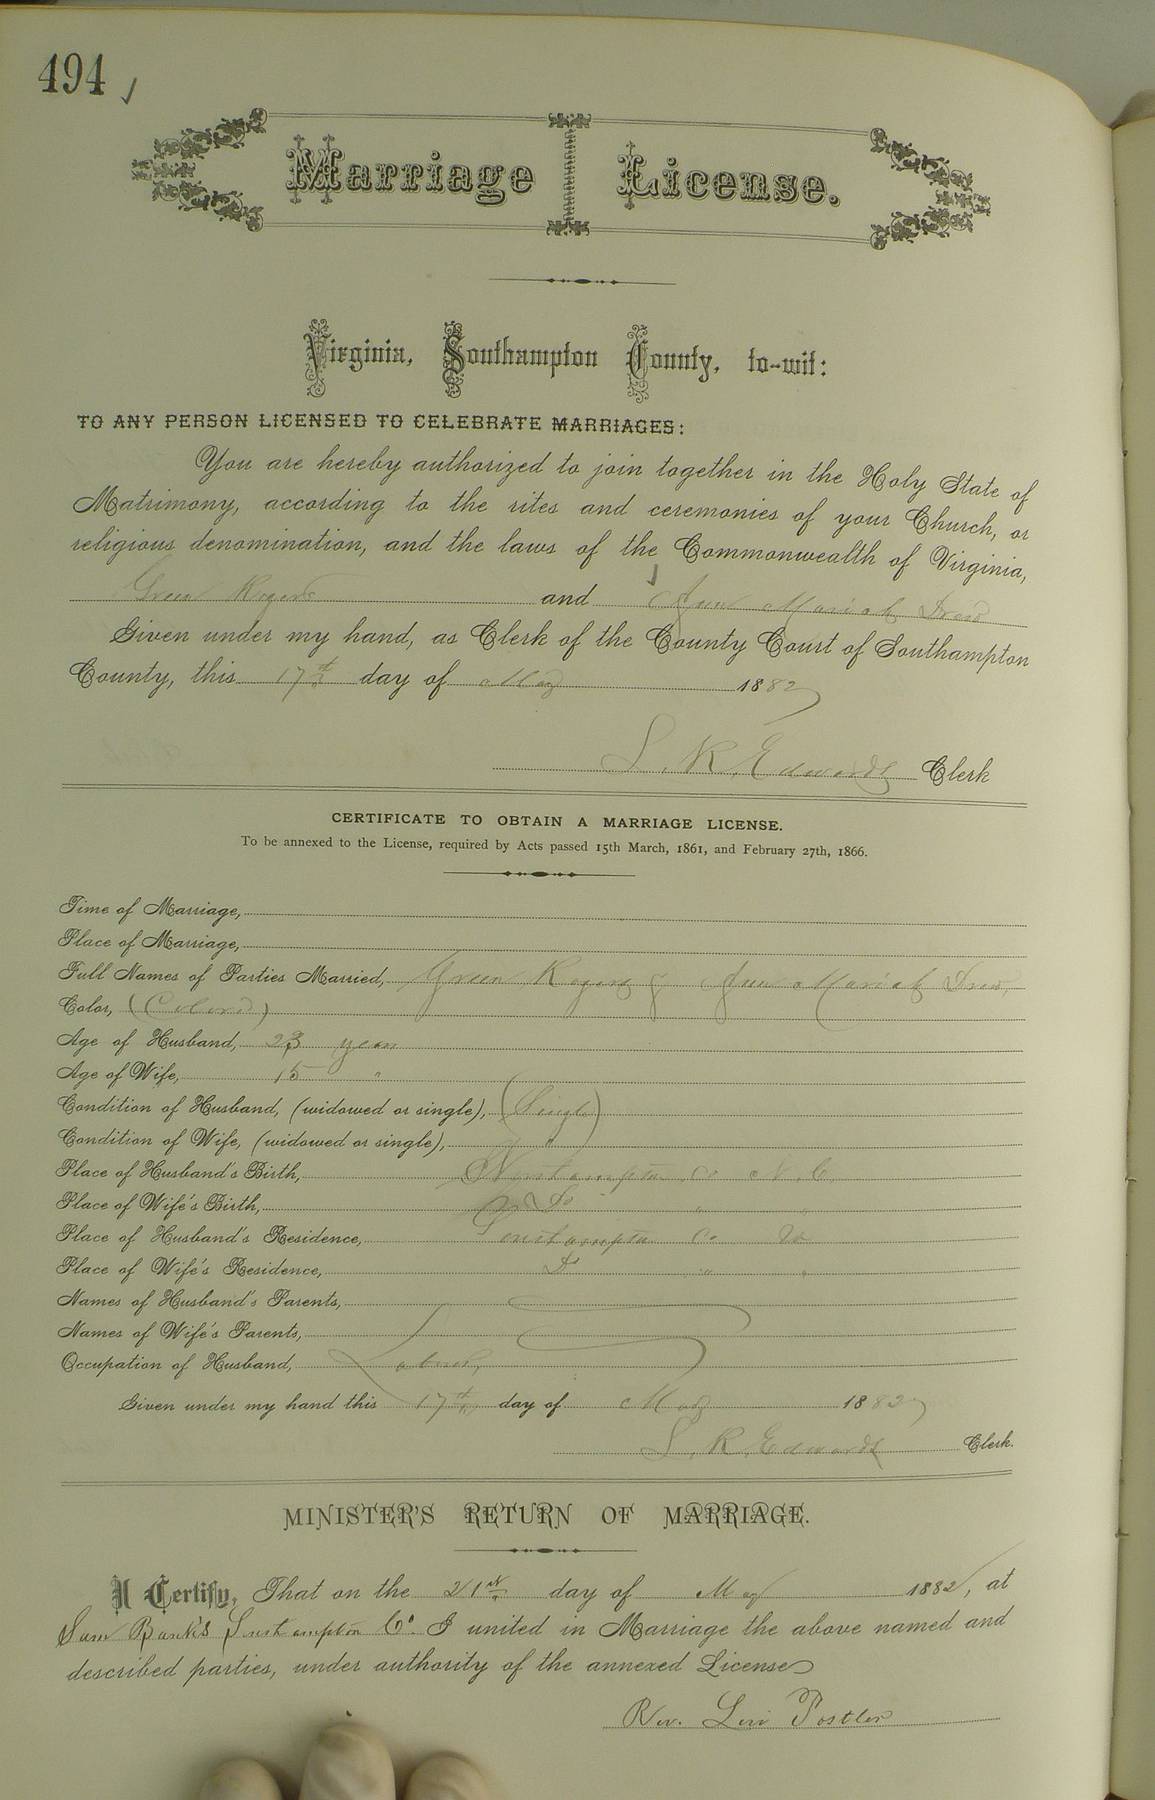 494 ✓
Marriage License.
Virginia, Southampton County, to-wit:
TO ANY PERSON LICENSED TO CELEBRATE MARRIAGES:
You are hereby authorized to join together in the Holy State of
Matrimony, according to the rites and ceremonies of your Church, or
religious denomination, and the laws of the Commonwealth of Virginia,
Green Rogers and Ann Mariah Drew
Given under my hand, as Clerk of the County Court of Southampton
County, this 17th day of May 1882
L. R. Edwards Clerk
CERTIFICATE TO OBTAIN A MARRIAGE LICENSE.
To be annexed to the License, required by Acts passed 15th March, 1861, and February 27th, 1866.
Time of Marriage,
Place of Marriage,
Full Names of Parties Married, Green Rogers & Ann Mariah Drew
Color, (Colored)
Age of Husband, 23 years
Age of Wife, 15 "
Condition of Husband, (widowed or single), (Single)
Condition of Wife, (widowed or single), "
Place of Husband's Birth, Northampton Co N.C.
Place of Wife's Birth, Do " "
Place of Husband's Residence, Southampton Co Va
Place of Wife's Residence, Do " "
Names of Husband's Parents,
Names of Wife's Parents,
Occupation of Husband, Laborer,
Given under my hand this 17th day of May 1882
L. R. Edwards Clerk.
MINISTER'S RETURN OF MARRIAGE.
I Certify, That on the 21st day of May 1882, at
Sam Bank's Southampton Co. I united in Marriage the above named and
described parties, under authority of the annexed License
Rev. Levi Postler